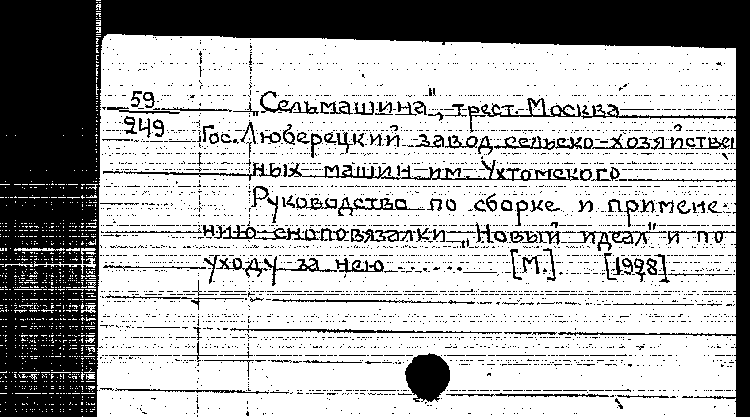 59
249
"Сельмашина", трест. Москва
Гос. Люберецкий завод сельско-хозяйствен
ных машин им. Ухтомского
Руководство по сборке и примене-
нию сноповязалки "Новый идеал" и по
уходу за нею ...... [М.] [1928]